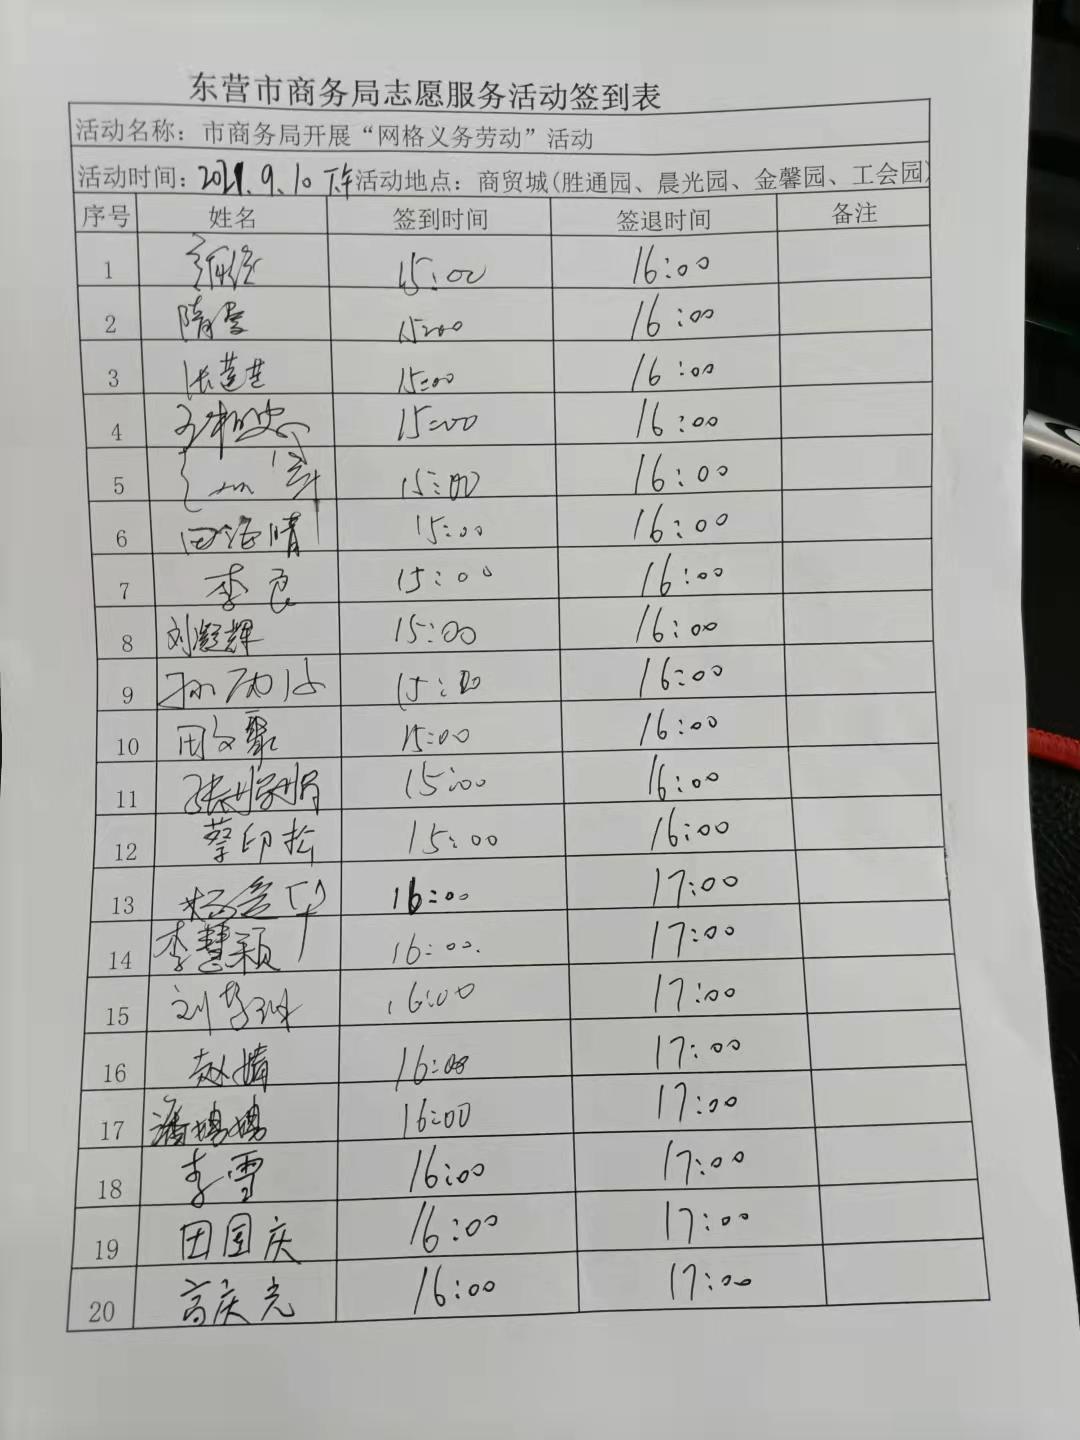 东营市商务局志愿服务活动签到表
活动名称：市商务局开展“网格义务劳动”活动
活动时间：2021.9.10 下午 活动地点：商贸城(胜通园、晨光园、金馨园、工会园)
序号 姓名 签到时间 签退时间 备注
1 15:00 16:00
2 隋雪 15:00 16:00
3 张莲芝 15:00 16:00
4 15:00 16:00
5 15:00 16:00
6 田海晴 15:00 16:00
7 李良 15:00 16:00
8 刘凝辉 15:00 16:00
9 15:00 16:00
10 田文聚 15:00 16:00
11 张娟娟 15:00 16:00
12 蔡印松 15:00 16:00
13 16:00 17:00
14 李慧颖 16:00 17:00
15 刘 16:00 17:00
16 赵婧 16:00 17:00
17 潘娉娉 16:00 17:00
18 李雪 16:00 17:00
19 田国庆 16:00 17:00
20 高庆光 16:00 17:00